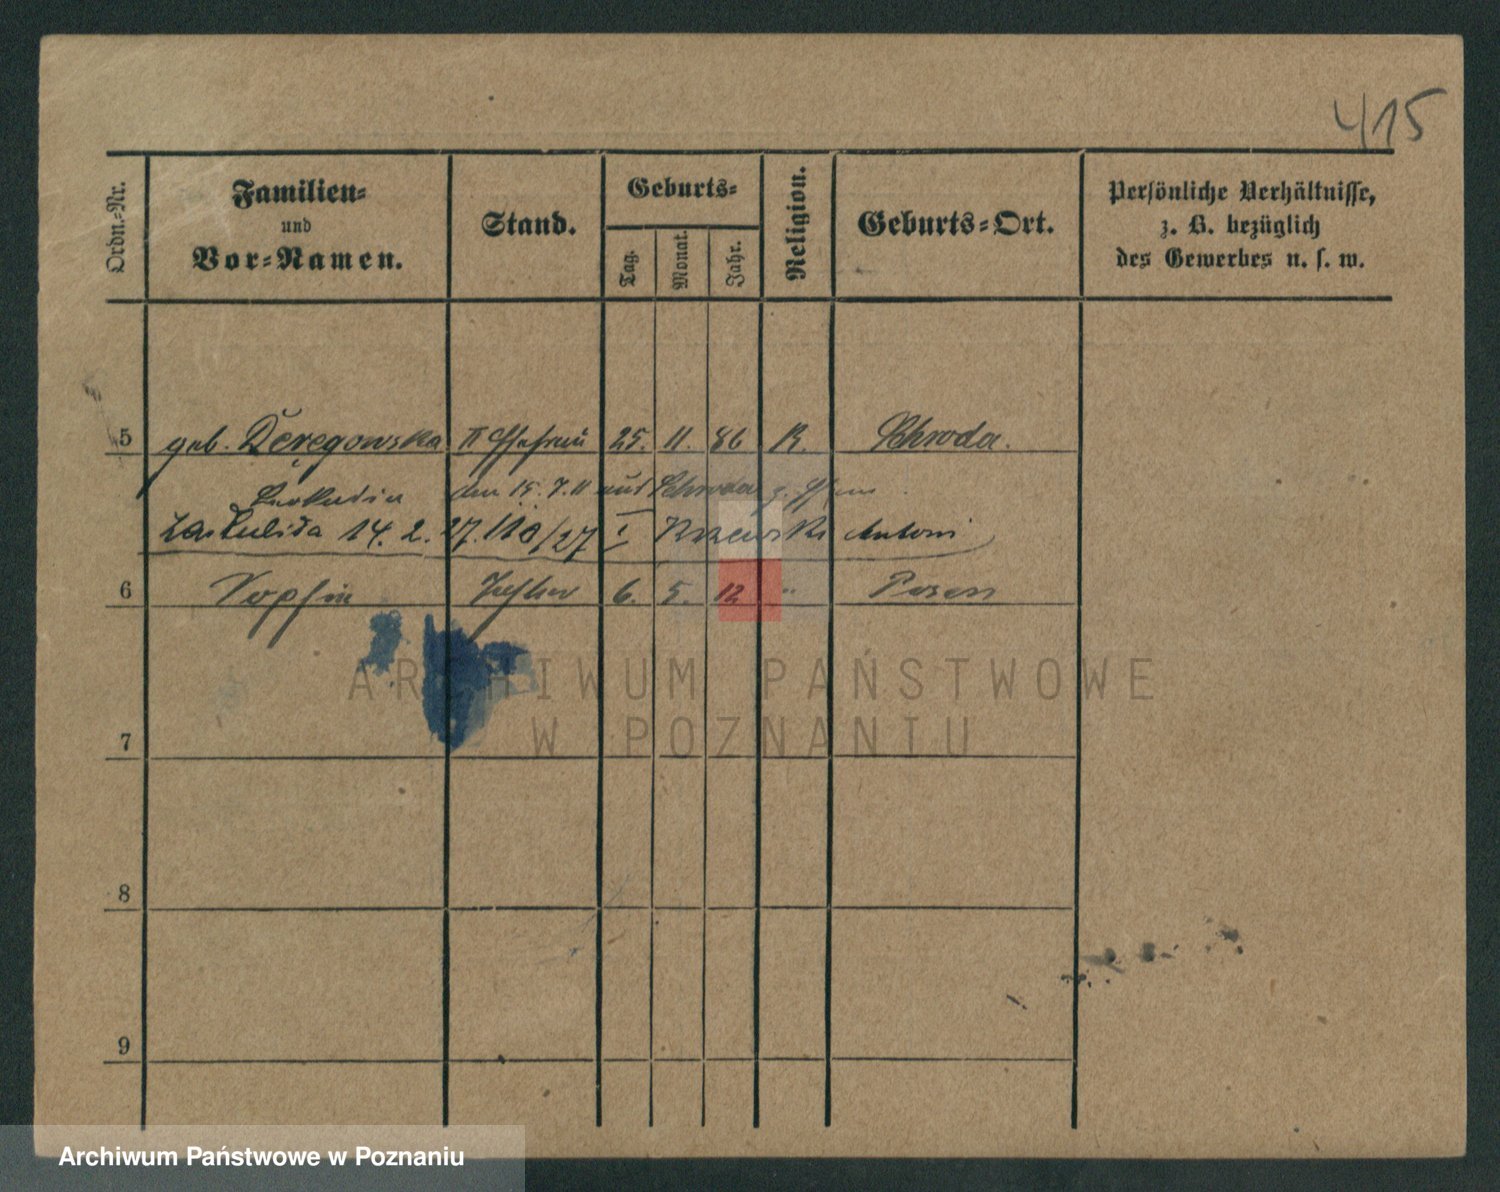 415
Ordn.-Nr.
Familien-
und
Vor-Namen.
Stand.
Geburts-
Tag.
Monat.
Jahr.
Religion.
Geburts-Ort.
Persönliche Verhältnisse,
z. B. bezüglich
des Gewerbes u. s. w.
5 geb. II Ehefrau 25. 11. 86 K. Schroda.
den 15. 7. 11 aus Schroda z.
14. 2. 27. Antoni
6 Sophie Tochter 6. 5. 12 " Posen
ARCHIWUM PAŃSTWOWE
W POZNANIU
7
8
9
Archiwum Państwowe w Poznaniu